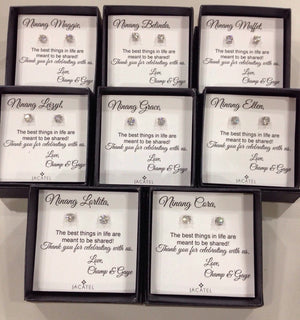 Ninang Maggie,
The best things in life are
meant to be shared!
Thank you for celebrating with us.
Love,
Champ & Gaye
Ninang Belinda,
The best things in life are
meant to be shared!
Thank you for celebrating with us.
Love,
Champ & Gaye
Ninang Maffet,
The best things in life are
meant to be shared!
Thank you for celebrating with us.
Love,
Champ & Gaye
Ninang Lezyl,
The best things in life are
meant to be shared!
Thank you for celebrating with us.
Love,
Champ & Gaye
JACATEL
Ninang Grace,
The best things in life are
meant to be shared!
Thank you for celebrating with us.
Love,
Champ & Gaye
JACATEL
Ninang Ellen,
The best things in life are
meant to be shared!
Thank you for celebrating with us.
Love,
Champ & Gaye
JACATEL
Ninang Lorlita,
The best things in life are
meant to be shared!
Thank you for celebrating with us.
Love,
Champ & Gaye
JACATEL
Ninang Cora,
The best things in life are
meant to be shared!
Thank you for celebrating with us.
Love,
Champ & Gaye
JACATEL